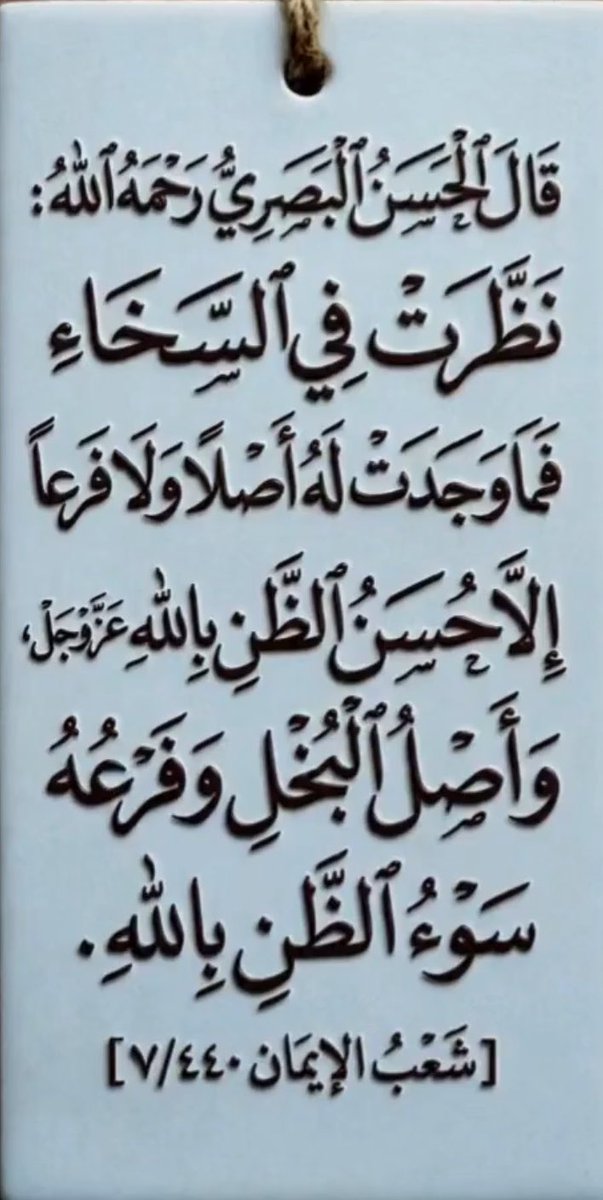 قَالَ ٱلْحَسَنُ ٱلْبَصَرِيُّ رَحْمَهُ ٱللهُ:
نَظَّرَتْ فِي ٱلسِّخَاءِ
فَمَا وَجَدَتْ لَهُ أَصْلًا وَلَا فَرعاً
إِلَّا حُسَنُ ٱلظَّنِ بِاللهِ عَزَّوْجَلْ،
وَأَصِلُ ٱلْبُخْلِ وَفَرْعُهُ
سَوْءُ ٱلظَّنِ بِاللهِ.
[شَعْبُ الإِيمَان ٧/٤٤٠]